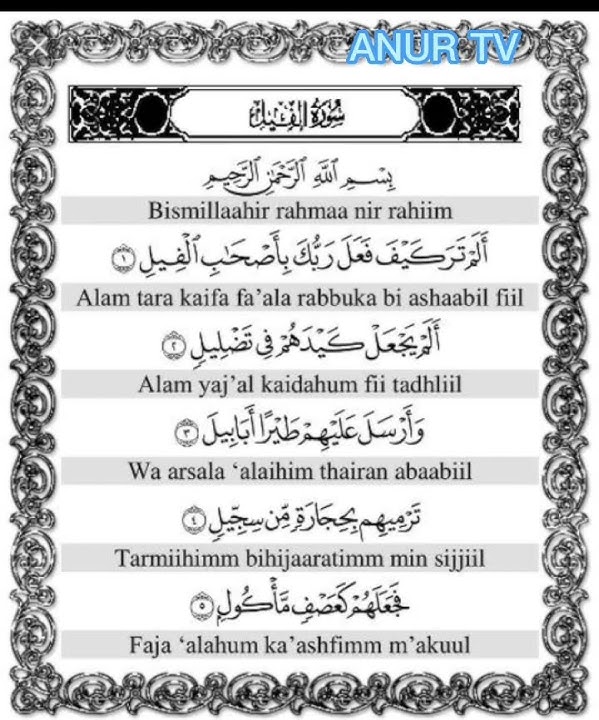 ANUR TV
سُورَةُ الْفِيلِ
بِسْمِ اللَّهِ الرَّحْمَٰنِ الرَّحِيمِ
Bismillaahir rahmaa nir rahiim
أَلَمْ تَرَ كَيْفَ فَعَلَ رَبُّكَ بِأَصْحَابِ الْفِيلِ ١
Alam tara kaifa fa’ala rabbuka bi ashaabil fiil
أَلَمْ يَجْعَلْ كَيْدَهُمْ فِي تَضْلِيلٍ ٢
Alam yaj’al kaidahum fii tadhliil
وَأَرْسَلَ عَلَيْهِمْ طَيْرًا أَبَابِيلَ ٣
Wa arsala ‘alaihim thairan abaabiil
تَرْمِيهِم بِحِجَارَةٍ مِّن سِجِّيلٍ ٤
Tarmiihimm bihijaaratimm min sijjiil
فَجَعَلَهُمْ كَعَصْفٍ مَّأْكُولٍ ٥
Faja ‘alahum ka’ashfimm m’akuul